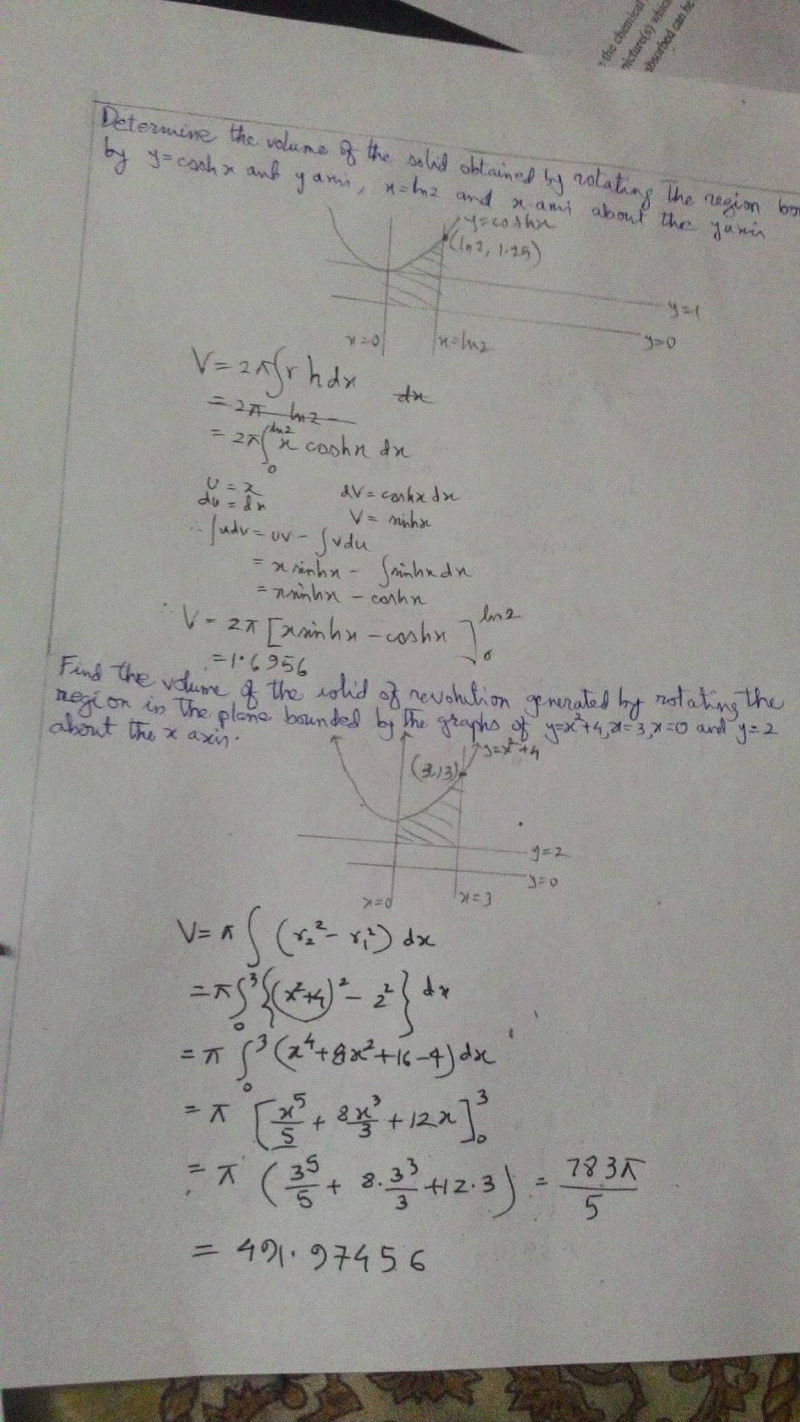 the chemical
picture(s) which
absorbed can be
Determine the volume of the solid obtained by rotating the region bou
by y=cosh x and y axis, x=ln2 and x axis about the y axis
y=coshx
(ln2, 1.25)
y=1
x=0
x=ln2
y=0
V = 2π∫r h dx
= 2π ln2 dx
= 2π∫₀^ln2 x coshx dx
u = x dv = coshx dx
du = dx V = sinhx
∴ ∫udv = uv - ∫vdu
= x sinhx - ∫sinhx dx
= x sinhx - coshx
∴ V = 2π [x sinhx - coshx]₀^ln2
= 1.6956
Find the volume of the solid of revolution generated by rotating the
region in the plane bounded by the graphs of y=x²+4, x=3, x=0 and y=2
about the x axis.
y=x²+4
(3,13)
y=2
y=0
x=0
x=3
V = π ∫ (r₂² - r₁²) dx
= π∫₀³ {(x²+4)² - 2²} dx
= π ∫₀³ (x⁴+8x²+16-4) dx
= π [x⁵/5 + 8x³/3 + 12x]₀³
= π (3⁵/5 + 8.3³/3 + 12.3) = 783π/5
= 491.97456